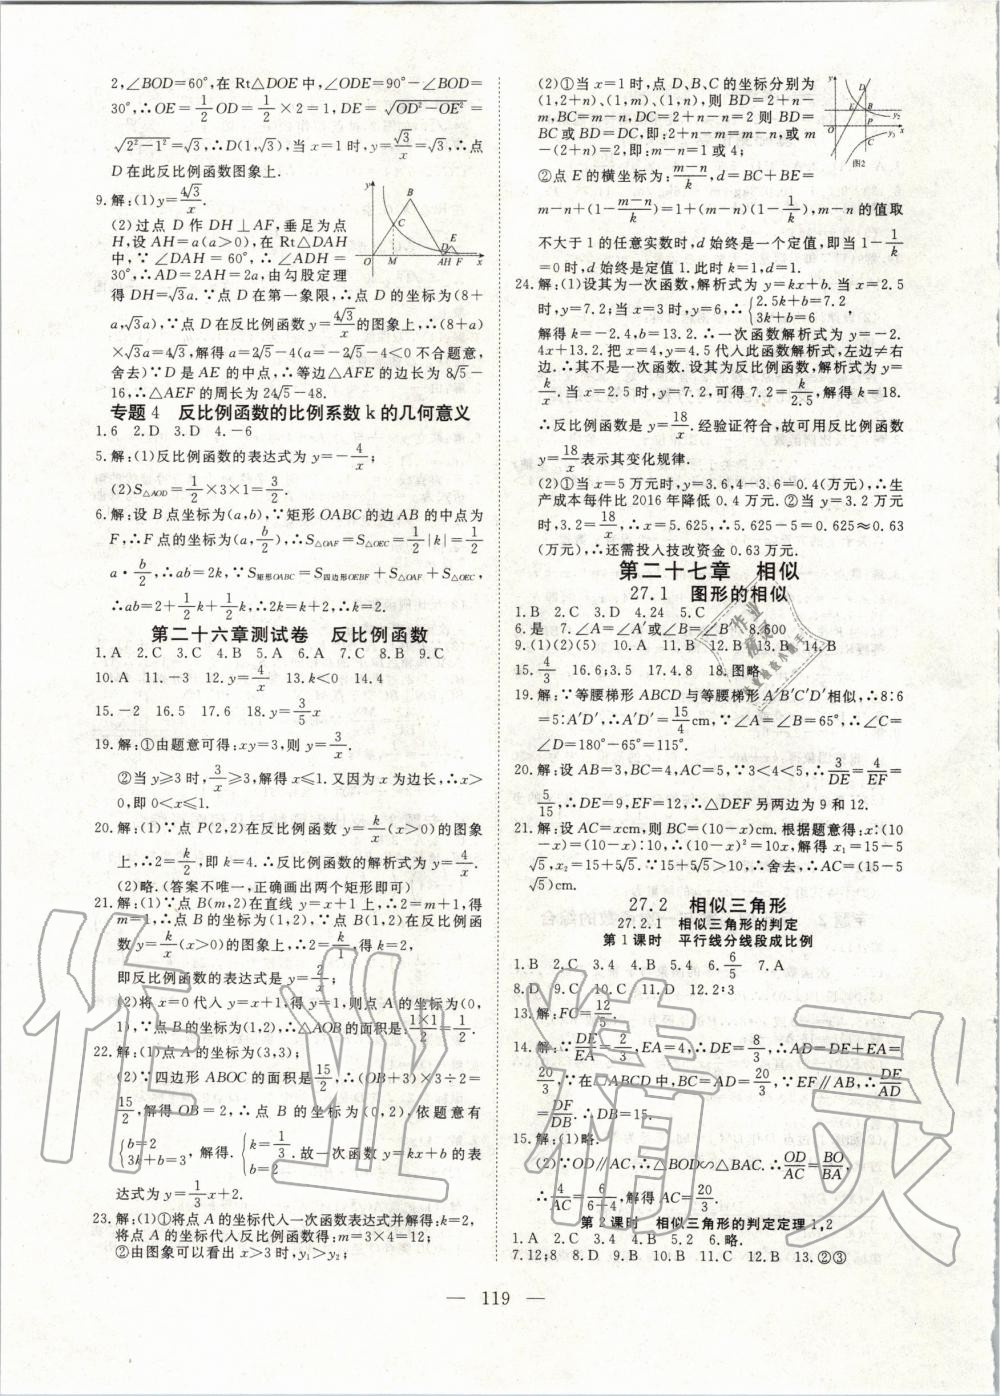 2,∠BOD=60°,在 Rt△DOE 中,∠ODE=90°-∠BOD=
30°,∴OE=1/2 OD=1/2×2=1,DE=√(OD²-OE²)=
√(2²-1²)=√3,∴D(1,√3),当 x=1 时,y=√3/x=√3,∴点
D 在此反比例函数图象上.
9.解:(1)y=4√3/x.
(2)过点 D 作 DH⊥AF,垂足为点
H,设 AH=a(a>0),在 Rt△DAH
中,∵∠DAH=60°,∴∠ADH=
30°,∴AD=2AH=2a,由勾股定理
得 DH=√3a.∵点 D 在第一象限,∴点 D 的坐标为(8+
a,√3a),∵点 D 在反比例函数 y=4√3/x 的图象上,∴(8+a)
×√3a=4√3,解得 a=2√5-4(a=-2√5-4<0 不合题意,
舍去)∵D 是 AE 的中点,∴等边△AFE 的边长为 8√5-
16,∴△AEF 的周长为 24√5-48.
专题 4 反比例函数的比例系数 k 的几何意义
1.6 2.D 3.D 4.-6
5.解:(1)反比例函数的表达式为 y=-4/x;
(2)S△AOD=1/2×3×1=3/2.
6.解:设 B 点坐标为(a,b),∵矩形 OABC 的边 AB 的中点为
F,∴F 点的坐标为(a,b/2),∴S△OAF=S△OEC=1/2|k|=1/2
a·b/2,∴ab=2k,∵S矩形OABC=S四边形OEBF+S△OAF+S△OEC,
∴ab=2+1/2k+1/2k,∴2k=k+2,∴k=2.
第二十六章测试卷 反比例函数
1.A 2.C 3.C 4.B 5.A 6.A 7.C 8.B 9.C
10.A 11.-3 12.y=4/x 13.k<0 14.4
15.-2 16.5 17.6 18.y=3/5x
19.解:①由题意可得:xy=3,则 y=3/x.
②当 y≥3 时,3/x≥3,解得 x≤1.又因为 x 为边长,∴x>
0,即 0<x≤1.
20.解:(1)∵点 P(2,2)在反比例函数 y=k/x(x>0)的图象
上,∴2=k/2,即 k=4.∴反比例函数的解析式为 y=4/x.
(2)略.(答案不唯一,正确画出两个矩形即可)
21.解:(1)∵点 B(m,2)在直线 y=x+1 上,∴2=m+1,得
m=1,∴点 B 的坐标为(1,2),∵点 B(1,2)在反比例函
数 y=k/x(x>0)的图象上,∴2=k/1,得 k=2,
即反比例函数的表达式是 y=2/x;
(2)将 x=0 代入 y=x+1,得 y=1,则点 A 的坐标为(0,
1),∵点 B 的坐标为(1,2),∴△AOB 的面积是:1×1/2=1/2.
22.解:(1)点 A 的坐标为(3,3);
(2)∵四边形 ABOC 的面积是 15/2,∴(OB+3)×3÷2=
15/2,解得 OB=2,∴点 B 的坐标为(0,2),依题意有
{b=2 3k+b=3,解得.{k=1/3 b=2.故一次函数 y=kx+b 的表
达式为 y=1/3x+2.
23.解:(1)①将点 A 的坐标代入一次函数表达式并解得:k=2,
将点 A 的坐标代入反比例函数得:m=3×4=12;
②由图象可以看出 x>3 时,y₁>y₂;
(2)①当 x=1 时,点 D、B、C 的坐标分别为
(1,2+n)、(1,m)、(1,n),则 BD=2+n-
m,BC=m-n,DC=2+n-n=2 则 BD=
BC 或 BD=DC,即:2+n-m=m-n,或 m
-(2+n)=2,即:m-n=1 或 4;
②点 E 的横坐标为:(m-n)/k,d=BC+BE=
m-n+(1-(m-n)/k)=1+(m-n)(1-1/k),m-n 的值取
不大于 1 的任意实数时,d 始终是一个定值,即当 1-1/k
=0 时,d 始终是定值 1.此时 k=1,d=1.
24.解:(1)设其为一次函数,解析式为 y=kx+b.当 x=2.5
时,y=7.2;当 x=3 时,y=6,∴{2.5k+b=7.2 3k+b=6
解得 k=-2.4,b=13.2.∴一次函数解析式为 y=-2.
4x+13.2.把 x=4,y=4.5 代入此函数解析式,左边≠右
边.∴其不是一次函数.设其为反比例函数,解析式为 y=
k/x.当 x=2.5 时,y=7.2,可得 7.2=k/2.5,解得 k=18.
∴反比例函数是 y=18/x.经验证符合,故可用反比例函数
y=18/x 表示其变化规律.
(2)①当 x=5 万元时,y=3.6,4-3.6=0.4(万元),∴生
产成本每件比 2016 年降低 0.4 万元.②当 y=3.2 万元
时,3.2=18/x,∴x=5.625,∴5.625-5=0.625≈0.63
(万元),∴还需投入技改资金 0.63 万元.
第二十七章 相似
27.1 图形的相似
1.B 2.C 3.D 4.24 5.C
6.是 7.∠A=∠A′或∠B=∠B′ 8.600
9.(1)(2)(5) 10.A 11.B 12.B 13.B 14.B
15.4/3 16.6;3.5 17.4.8 18.图略
19.解:∵等腰梯形 ABCD 与等腰梯形 A′B′C′D′相似,∴8∶6
=5∶A′D′,∴A′D′=15/4cm,∵∠A=∠B=65°,∴∠C=
∠D=180°-65°=115°.
20.解:设 AB=3,BC=4,AC=5,∵3<4<5,∴3/DE=4/EF=
5/15,∴DE=9,EF=12,∴△DEF 另两边为 9 和 12.
21.解:设 AC=xcm,则 BC=(10-x)cm.根据题意得:x∶(10
-x)=(10-x)∶10,∴(10-x)²=10x,解得 x₁=15-5
√5,x₂=15+5√5.∵15+5√5>10,∴舍去,∴AC=(15-5
√5)cm.
27.2 相似三角形
27.2.1 相似三角形的判定
第 1 课时 平行线分线段成比例
1.B 2.C 3.4 4.B 5.4 6.6/5 7.A
8.D 9.C 10.C 11.D 12.2∶3
13.解:FC=12/5.
14.解:∵DE/EA=2/3,EA=4,∴DE=8/3,∴AD=DE+EA=
20/3,∵在▱ABCD 中,BC=AD=20/3,∵EF∥AB,∴DE/AD=
DF/DB.∴DB=15.
15.解:(1)略.
(2)∵OD∥AC,∴△BOD∽△BAC.∴OD/AC=BO/BA,
∴4/AC=6/(6+4),解得 AC=20/3.
第 2 课时 相似三角形的判定定理 1,2
1.A 2.C 3.4 4.B 5.2 6.略.
7.12;8 8.D 9.C 10.B 11.C 12.B 13.②③
— 119 —
作业精灵